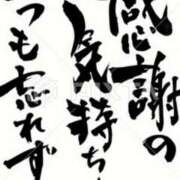 感謝の
気持ち
つも忘れず